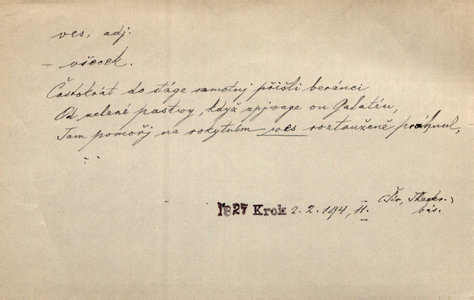 ves, adj.
– všecek.
Častokrát do stáge samotny přišli beránci
Od zelené pastwy, když zpjvage on Galatén,
Tam pomořj na rokytném wes roztouženě práhnul,
1827 Krok 2. 2. 194, 11.
(Šír, Theokr.)
bás.